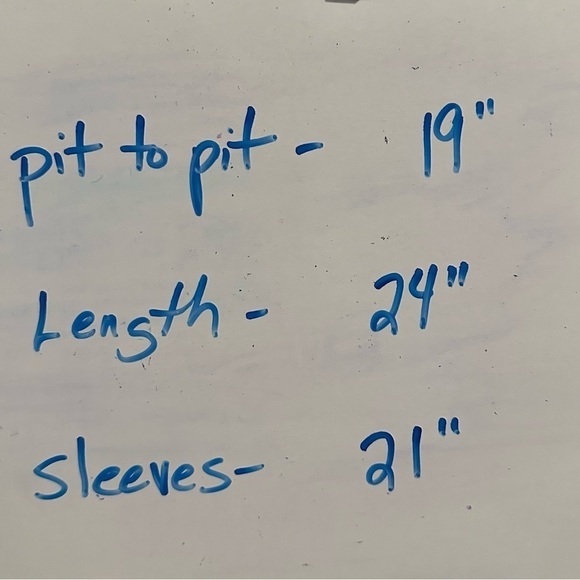 pit to pit - 19"
Length - 24"
Sleeves- 21"